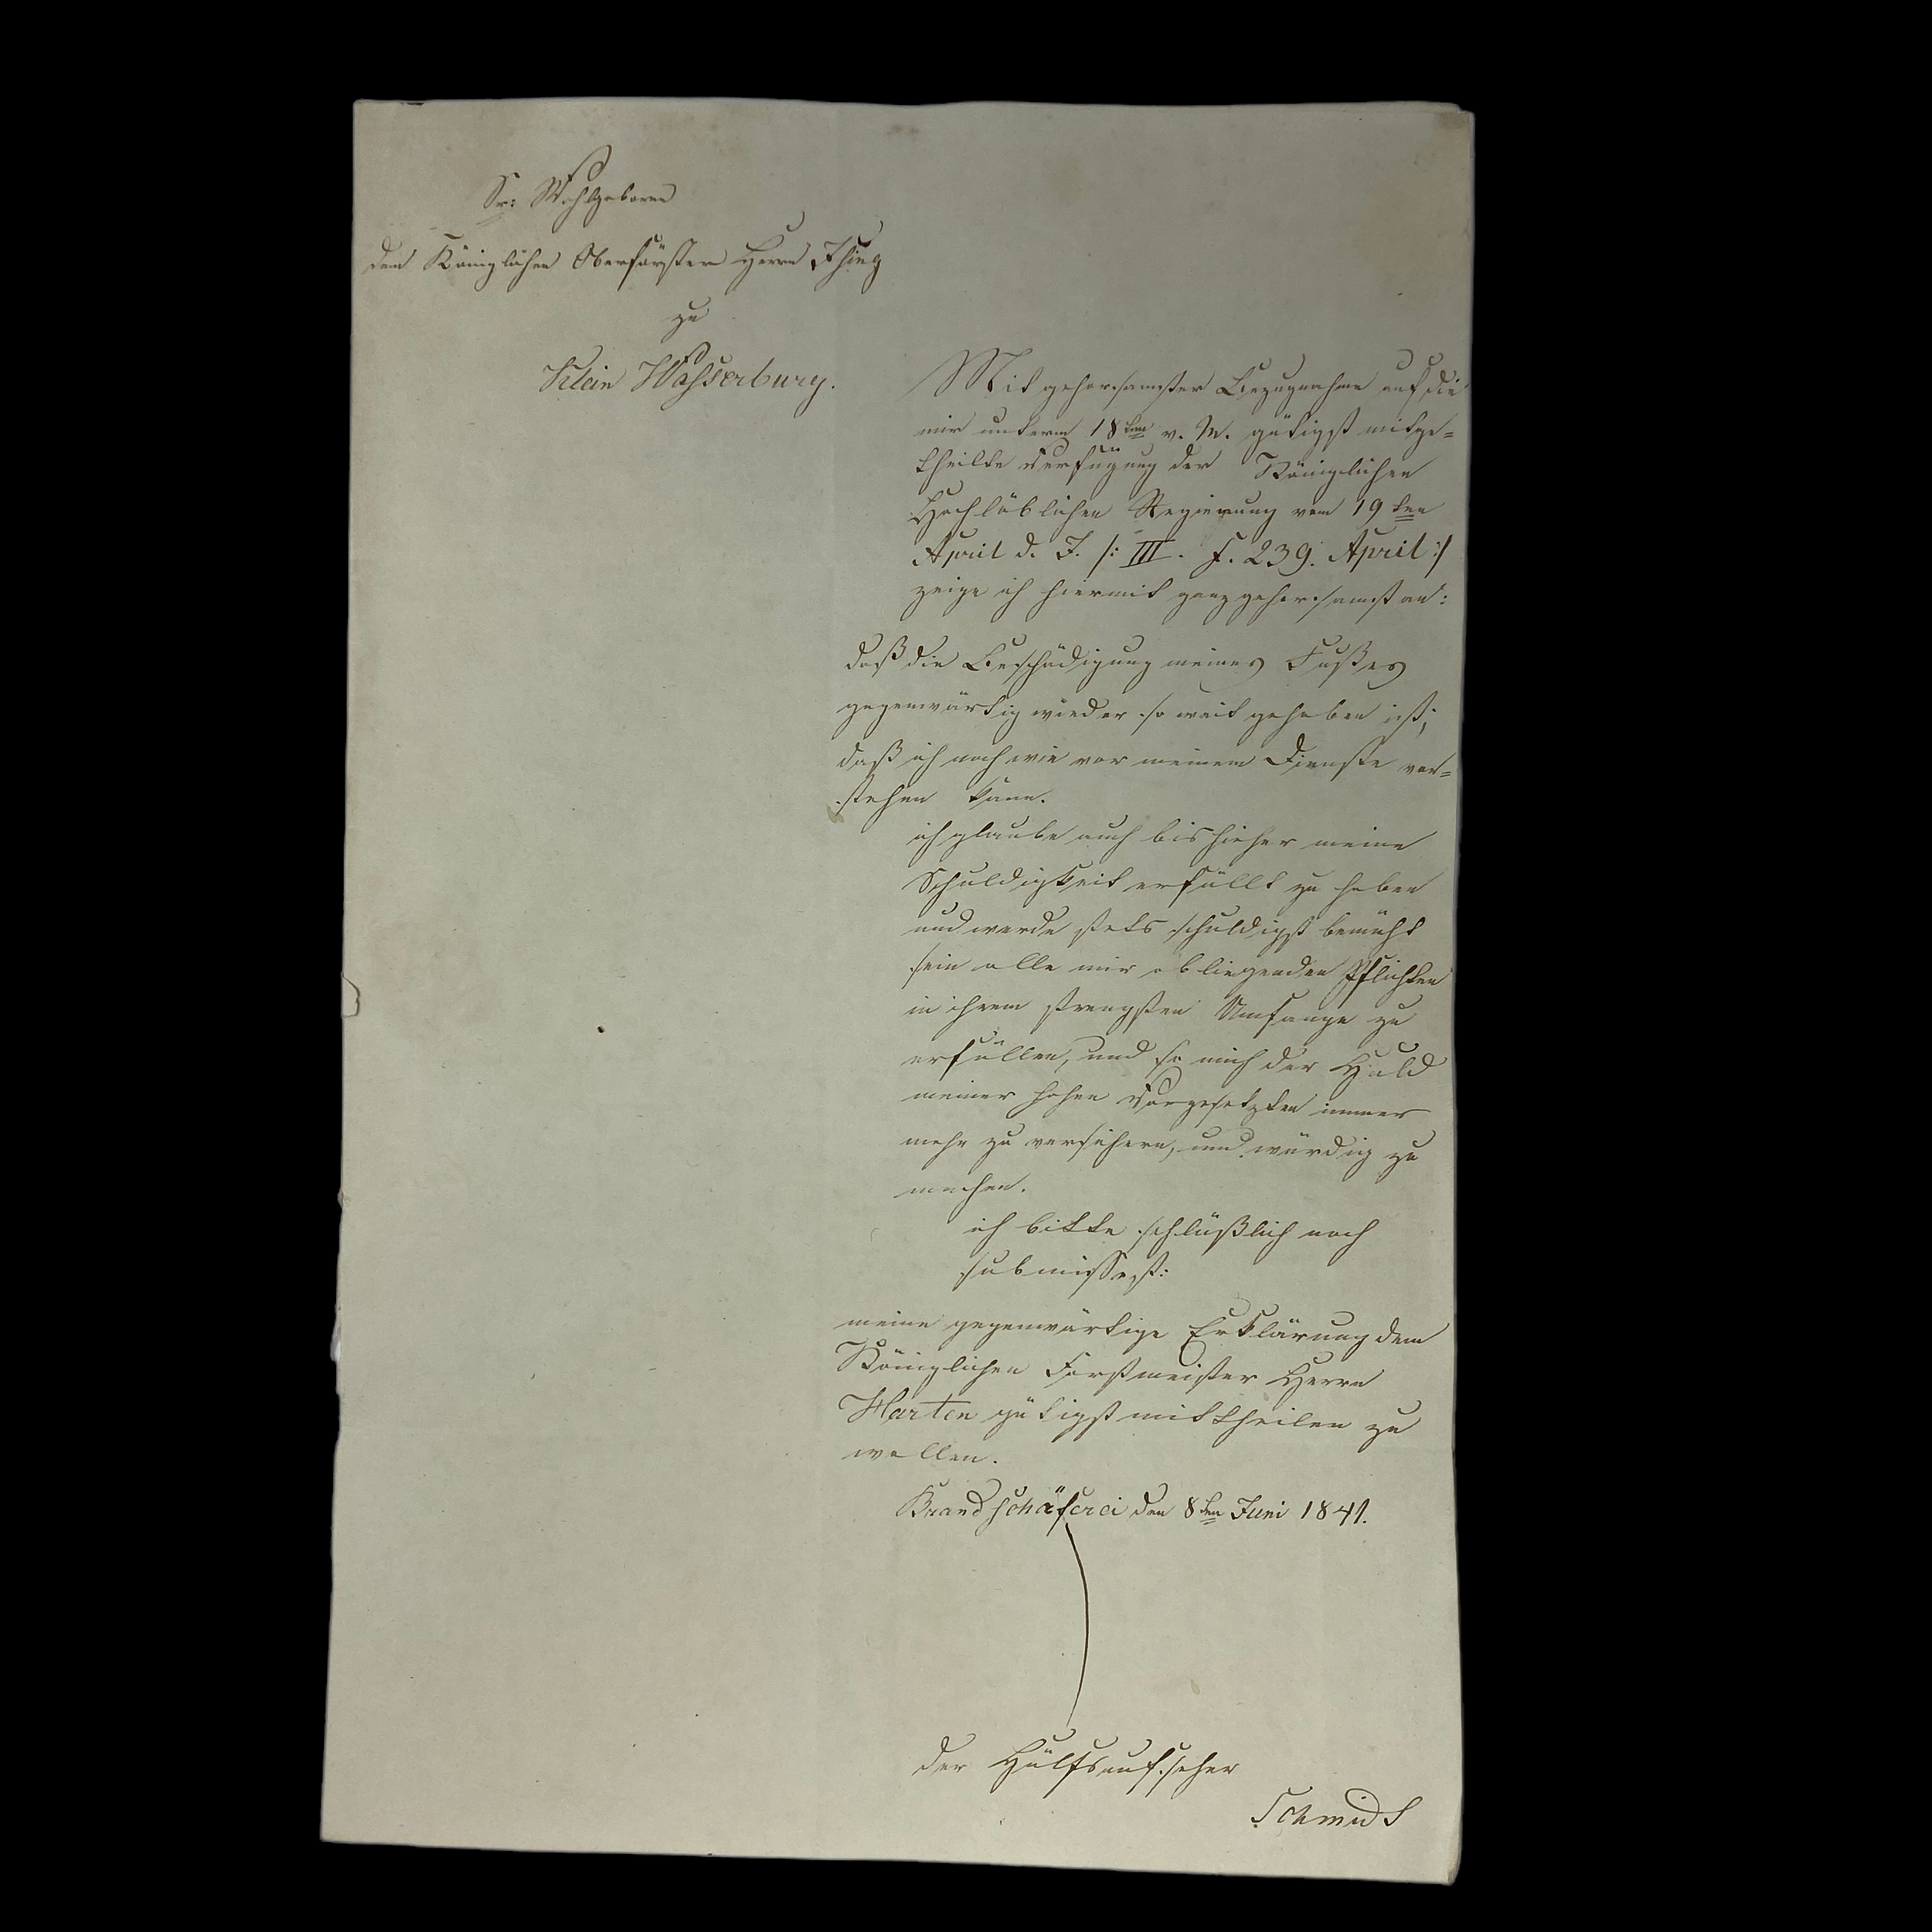 Sr: Wohlgeboren
dem Königlichen Oberförster Herrn
zu
Klein Wasserburg.
Mit gehorsamster Bezugnahme auf die
mir unterm 18ten v. M. gütigst mitge=
theilte Verfügung der Königlichen
Hochlöblichen Regierung vom 19ten
April d. J. /: III. f. 239. April :/
zeige ich hiermit ganz gehorsamst an:
daß die Beschädigung meines Fußes
gegenwärtig wieder so weit gehoben ist,
daß ich nach wie vor meinem Dienste vor=
stehen kann.
ich glaube auch bis hieher meine
Schuldigkeit erfüllt zu haben
und werde stets schuldigst bemüht
sein alle mir obliegenden Pflichten
in ihrem strengsten Umfange zu
erfüllen, und so mich der Huld
meiner hohen Vorgesetzten immer
mehr zu versichern, und würdig zu
machen.
ich bitte schlüßlich noch
submissest:
meine gegenwärtige Erklärung dem
Königlichen Forstmeister Herrn
Harten gütigst mittheilen zu
wollen.
Brandschäferei den 8ten Juni 1841.
der Hülfsaufseher
Schmidt